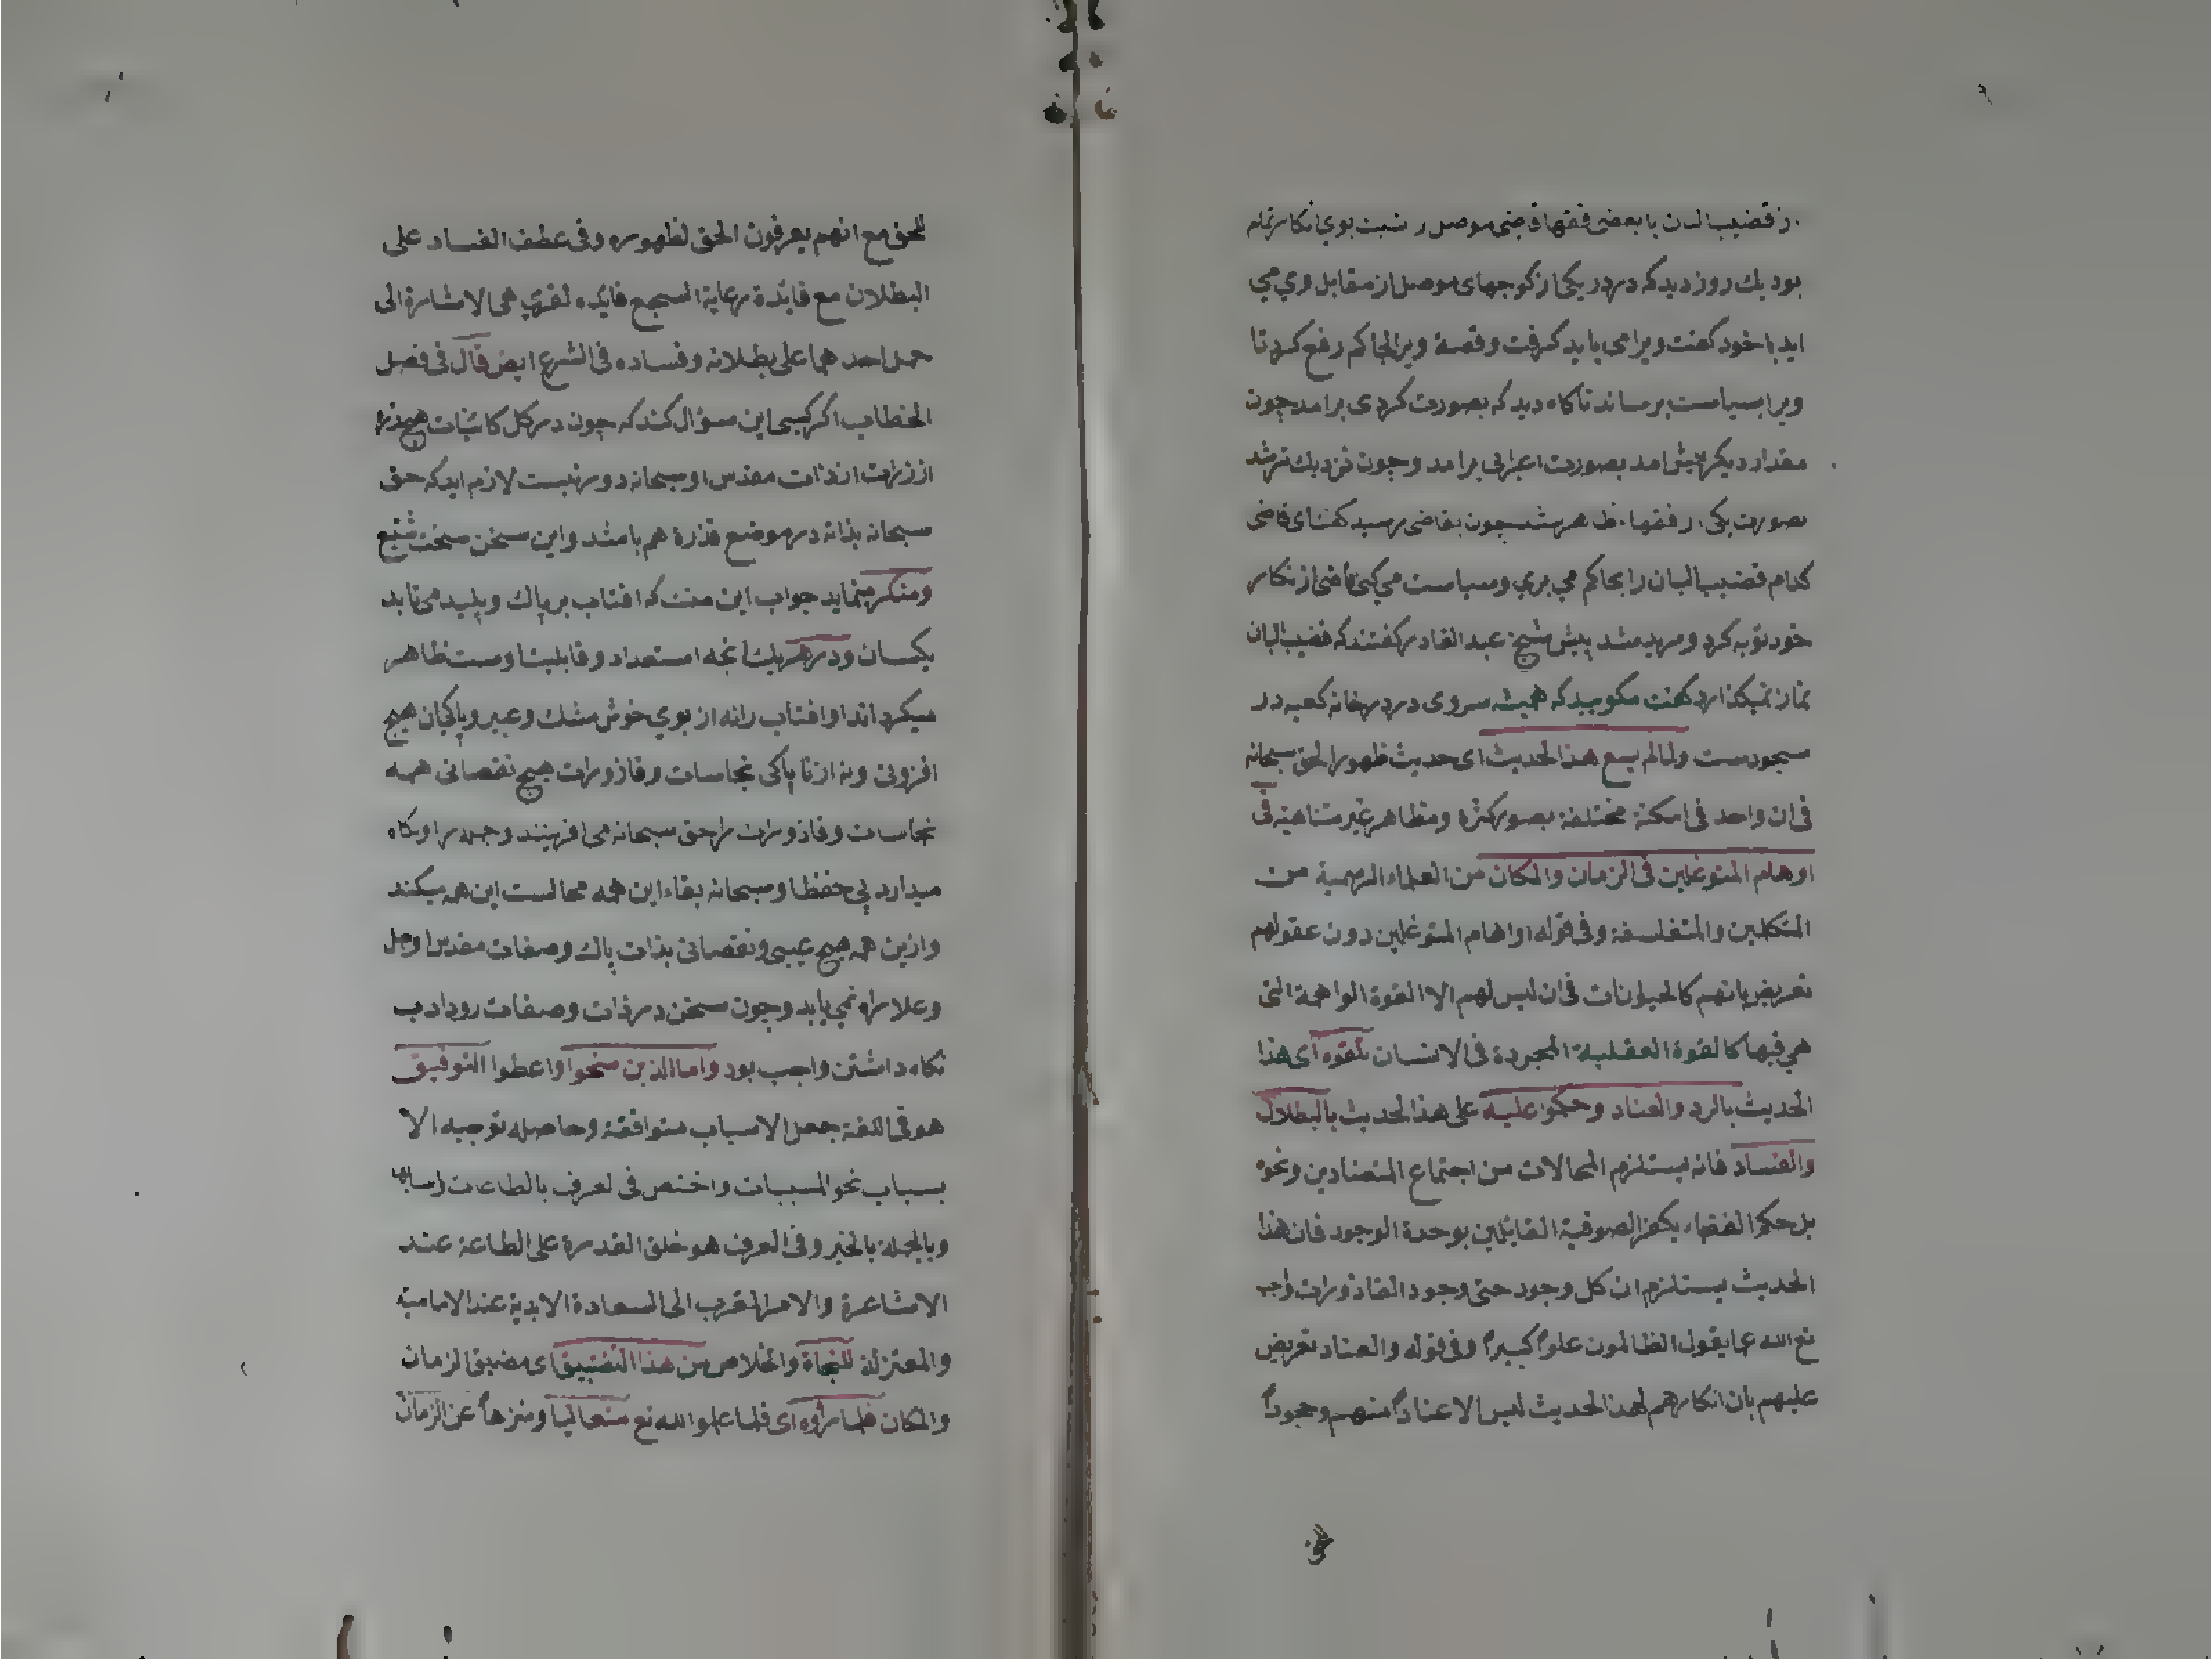 از قضیب البان با بعضی فقها قاضی موصل را نسبت بوی انکار تمام
بود یك روز دید که در در یکی از کوچهای موصل از مقابل وی می
اید با خود کفت ویرا می باید کرفت وقصهٔ ویرا بحاکم رفع کرد تا
ویرا بسیاست برساند ناکاه دید که بصورت کردی برامد چون
مقدار دیکر پیش امد بصورت اعرابی برامد وچون نزدیك تر شد
بصورت یکی از فقها ظاهر شد چون بقاضی رسید کفت ای قاضی
کدام قضیب البان را بحاکم می بری وسیاست می کنی قاضی از انکار
خود توبه کرد ومرید شد پیش شیخ عبد القادر کفتند که قضیب البان
نماز نمیکذارد کفت مکویید که همیشه سر وی در در خانه کعبه در
سجودست ولما لم یسع هذا الحدیث ای حدیث ظهور الحق سبحانه
فی ان واحد فی امکنة مختلفة بصور کثره ومظاهر غیر متناهیة فی
اوهام المتوغلین فی الزمان والمکان من العلماء الرسمیة من
المتکلمین والمتفلسفة وفی قوله اواهام المتوغلین دون عقولهم
تعریض بانهم کالحیوانات فی ان لیس لهم الا القوة الواهمة التی
هی فیها کالقوة العقلیة المجردة فی الانسان تلقوه ای هذا
الحدیث بالرد والعناد وحکموا علیه علی هذا الحدیث بالبطلان
والفساد فانه یستلزم المحالات من اجتماع المتضادین ونحوه
بل حکوا الفقهاء بکفر الصوفیة القایلین بوحدة الوجود فان هذا
الحدیث یستلزم ان کل وجود حتی وجود القاذورات واجب
تع الله عما یقول الظالمون علوا کبیرا وفی قوله والعناد تعریض
علیهم بان انکارهم لهذا الحدیث لیس الا عنادا منهم وجحودا
للحق مع انهم یعرفون الحق لظهوره وفی عطف الفساد علی
البطلان مع فایدة رعایة السجع فایده اخری هی الاشارة الی
حمل احدهما علی بطلانه وفساده فی الشرع ایض قال فی فصل
الخطاب اکر کسی این سؤال کند که چون در کل کائنات هیچ ذره
از ذرات از ذات مقدس او سبحانه دور نیست لازم اید که حق
سبحانه بذاته در موضع قذرة هم باشد واین سخن سخت شنیع
ومنکر مینماید جواب این ست که افتاب بر پاك وپلید می تابد
یکسان ودر هریك انچه استعداد وقابلیت اوست ظاهر
میکرداند او افتاب را نه از بوی خوش مشك وعبیر وپاکیان هیچ
افزونی ونه از ناپاکی نجاسات وقاذورات هیچ نقصانی همه
نجاسات وقاذورات را حق سبحانه می افریند وجمله را او نکاه
میدارد بی حفظ او سبحانه بقاء این همه محالست این همه میکند
وازین همه هیچ عیبی ونقصانی بذات پاك وصفات مقدس او جل
وعلا راه نمی یابد وچون سخن در ذات وصفات رود ادب
نکاه داشتن واجب بود واما الذین منحوا واعطوا التوفیق
هو فی اللغة جعل الاسباب متوافقة وحاصله توجیه الا
سباب نحو المسببات واختص فی العرف بالطاعات
وبالجملة بالخیر وفی العرف هو خلق القدرة علی الطاعة عند
الاشاعرة والامر المقرب الی السعادة الابدیة عند الامامیة
والمعتزلة للنجاة والخلاص من هذا التضییق ای مضیق الزمان
والمکان فلما رأوه ای فلما علموا الله تع متعالیا ومنزها عن الزمان